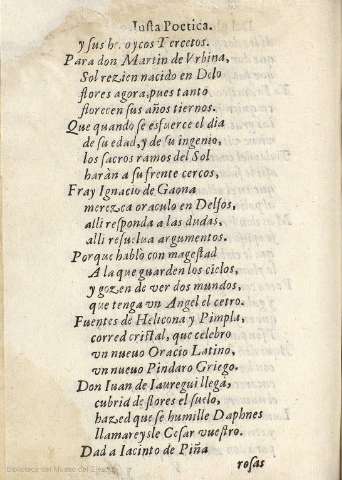 Iusta Poetica.
y sus heroycos Tercetos.
Para don Martin de Vrbina,
Sol rezien nacido en Delo
flores agora, pues tanto
florecen sus años tiernos.
Que quando se esfuerce el dia
de su edad, y de su ingenio,
los sacros ramos del Sol
haràn a su frente cercos,
Fray Ignacio de Gaona
merezca oraculo en Delfos,
alli responda a las dudas,
alli resuelua argumentos.
Porque hablò con magestad
A la que guarden los cielos,
y gozen de ver dos mundos,
que tenga vn Angel el cetro.
Fuentes de Helicona y Pimpla,
corred cristal, que celebro
vn nueuo Oracio Latino,
vn nueuo Pindaro Griego.
Don Iuan de Iauregui llega,
cubrid de flores el suelo,
hazed que se humille Daphnes
llamareysle Cesar vuestro.
Dad a Iacinto de Piña
rosas
Biblioteca del Museo del Ejército